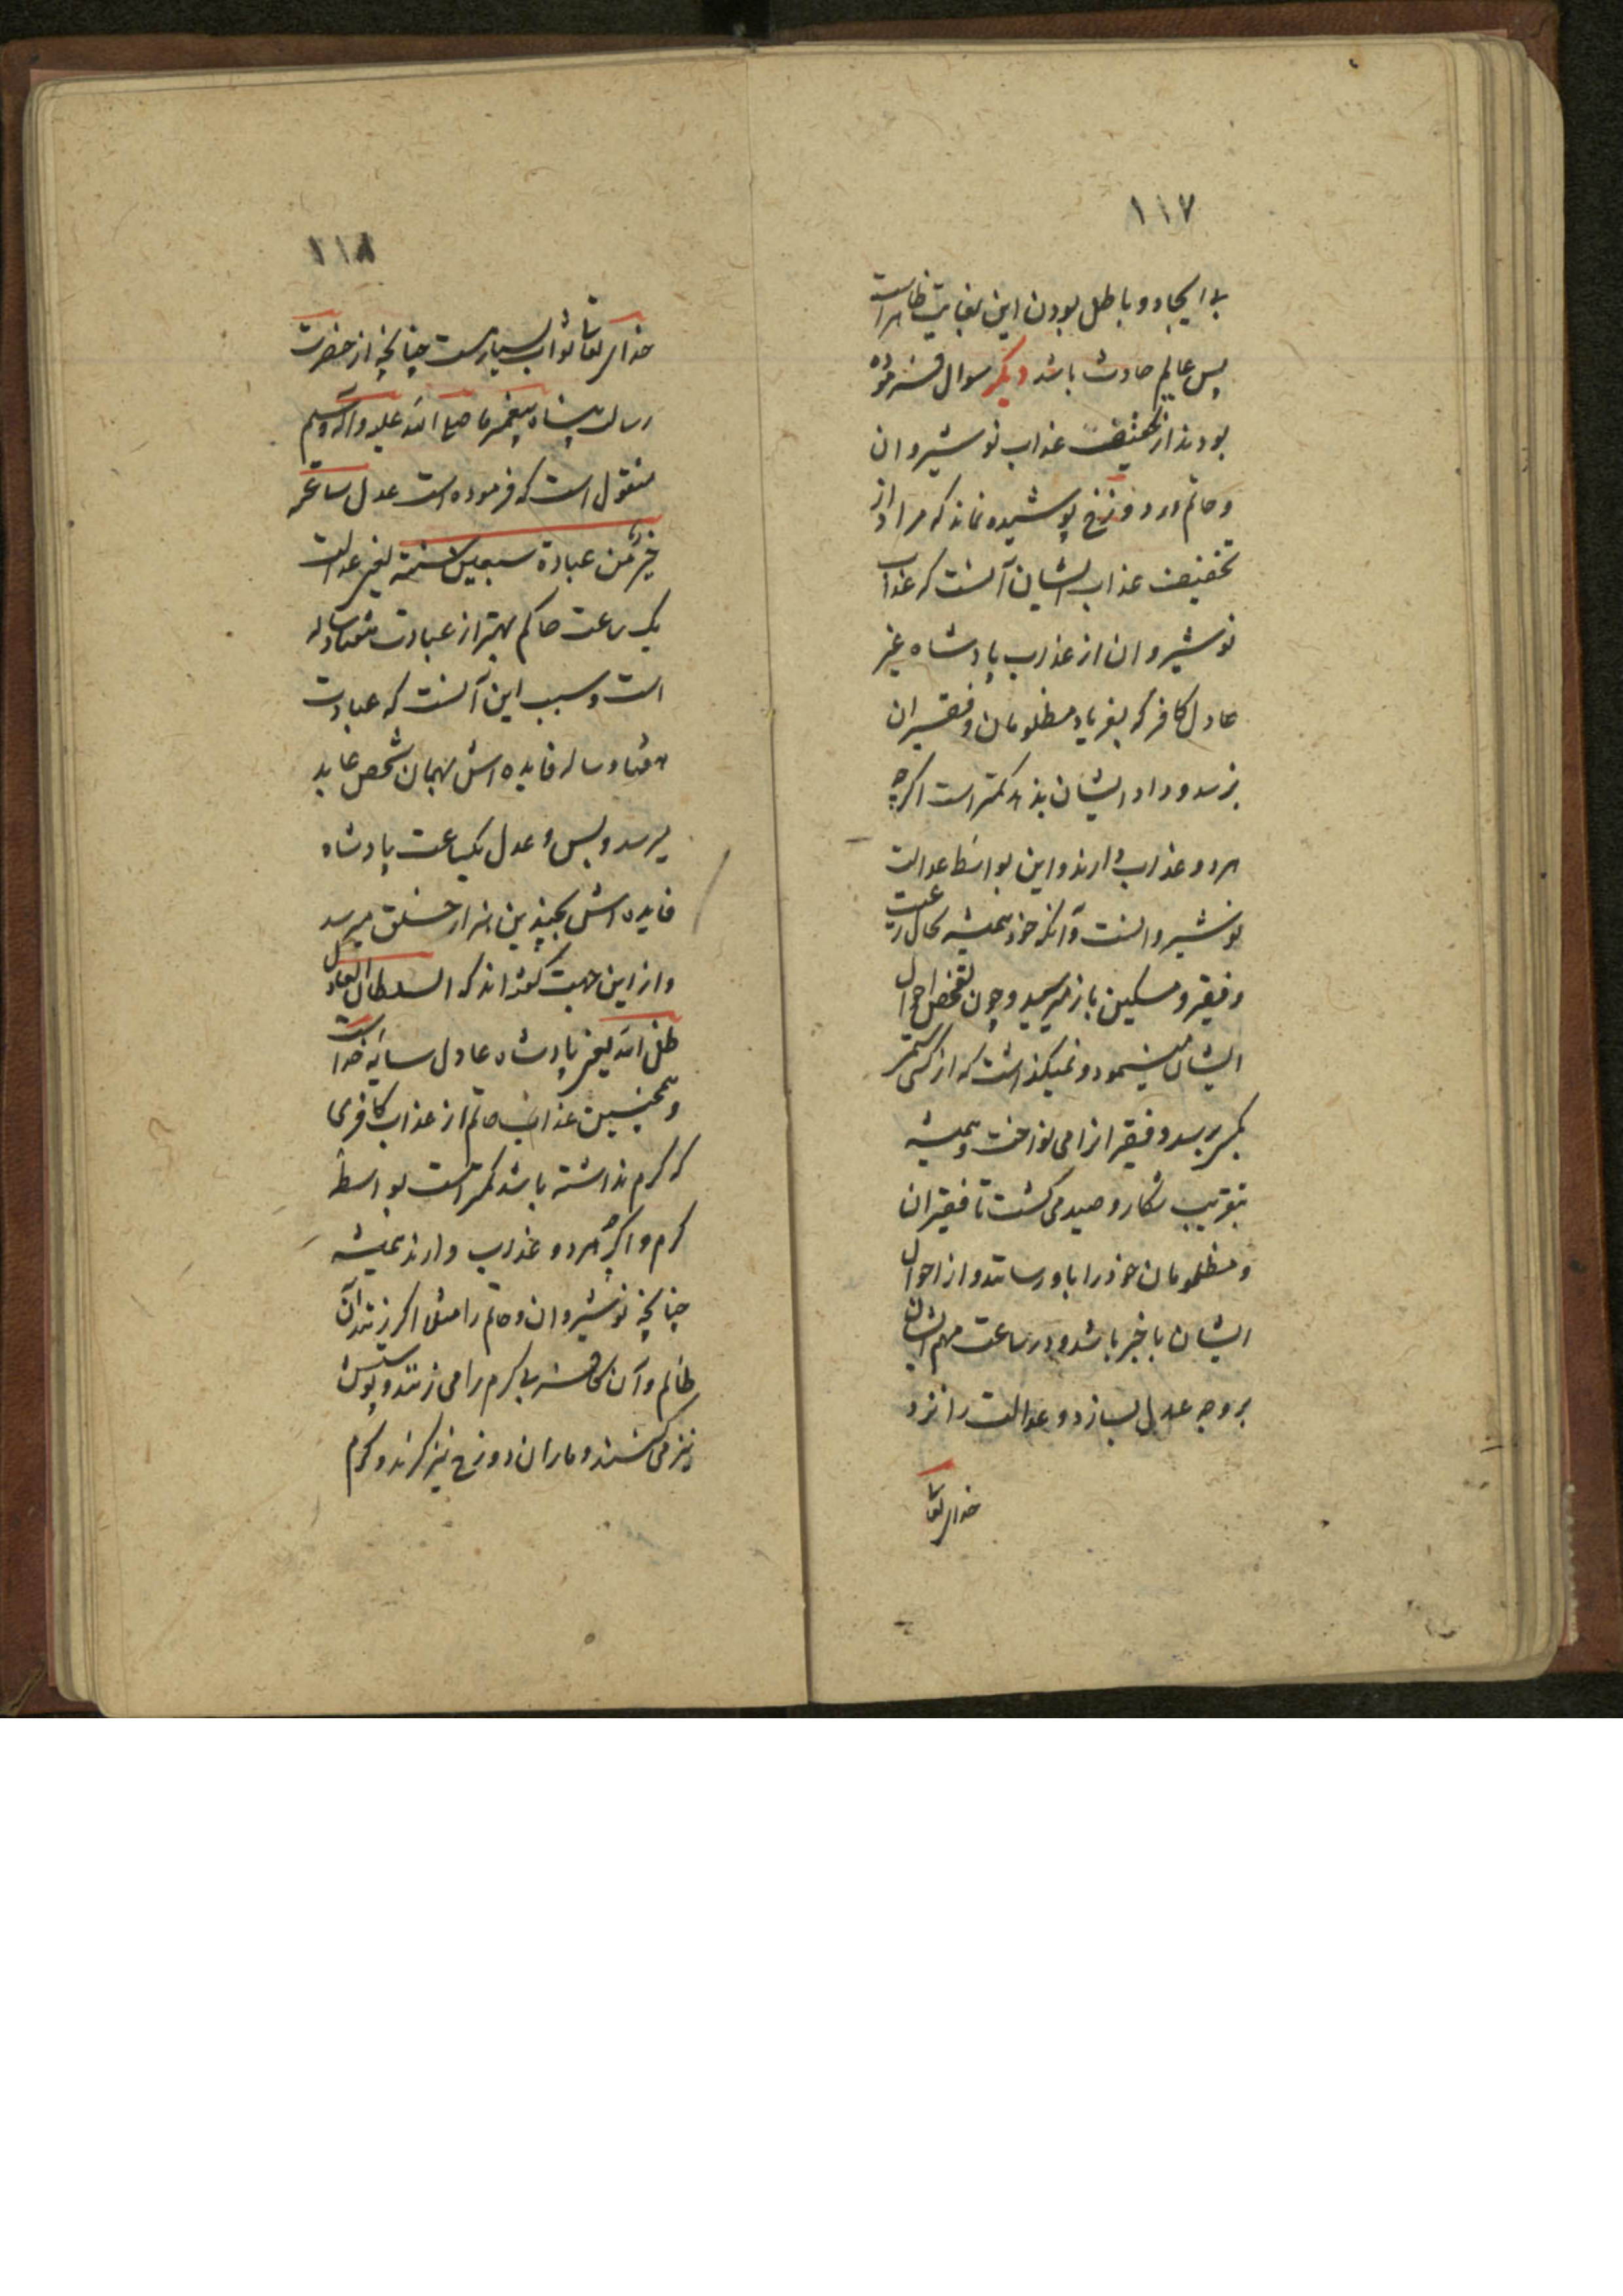 ١١٧
بی ایجاد و باطل بودن این بغایت ظاهر است
پس عالم حادث باشد دیکر سوال فرموده
بودند از تخفیف عذاب نوشیروان
و حاتم در دوزخ پوشیده نماند که مراد از
تخفیف عذاب ایشان آنست که عذاب
نوشیروان از عذاب پادشاه غیر
عادل کافر که بفریاد مظلومان و فقیران
نرسد و داد ایشان ندهد کمتر است اکرچه
هر دو عذاب دارند و این بواسطه عدالت
نوشیروانست و آنکه خود همیشه بحال رعیت
و فقیر و مسکین باز میرسید و چون تفحص احوال
ایشان مینمود و نمیکذاشت که از کسی ستمی
بکسی برسد و فقیرانرا می نواخت و همیشه
بتقریب شکار و صید می کشت تا فقیران
و مظلومان خود را باو رسانند و از احوال
ایشان با خبر باشد و در ساعت مهم ایشان
بر وجه عدل بسازد و عدالت را نزد
خدای تعا
١١٨
خدای تعالی ثواب بسیار است چنانچه از حضرت
رسالت پناه پیغمبر ما صلی الله علیه وآله وسلم
منقول است که فرموده است عدل ساعة
خیر من عبادة سبعین سنة یعنی عدالت
یک ساعت حاکم بهتر از عبادت هفتاد ساله
است و سبب این آنست که عبادت
هفتاد ساله فایده اش بهمان شخص عابد
میرسد و بس و عدل یکساعت پادشاه
فایده اش بچندین هزار خلق میرسد
و از این جهت گفته اند که السلطان العادل
ظل الله یعنی پادشاه عادل سایه خدا است
و همچنین عذاب حاتم از عذاب کافری
که کرم نداشته باشد کمتر است بواسطه
کرم و اکرچه هر دو عذاب دارند همیشه
چنانچه نوشیروان و حاتم را مثلا اکر زنند آن
ظالم و آن کافر بی کرم را می زنند و پوستش
نیز می کنند و ماران دوزخ نیز کزند و کژدم